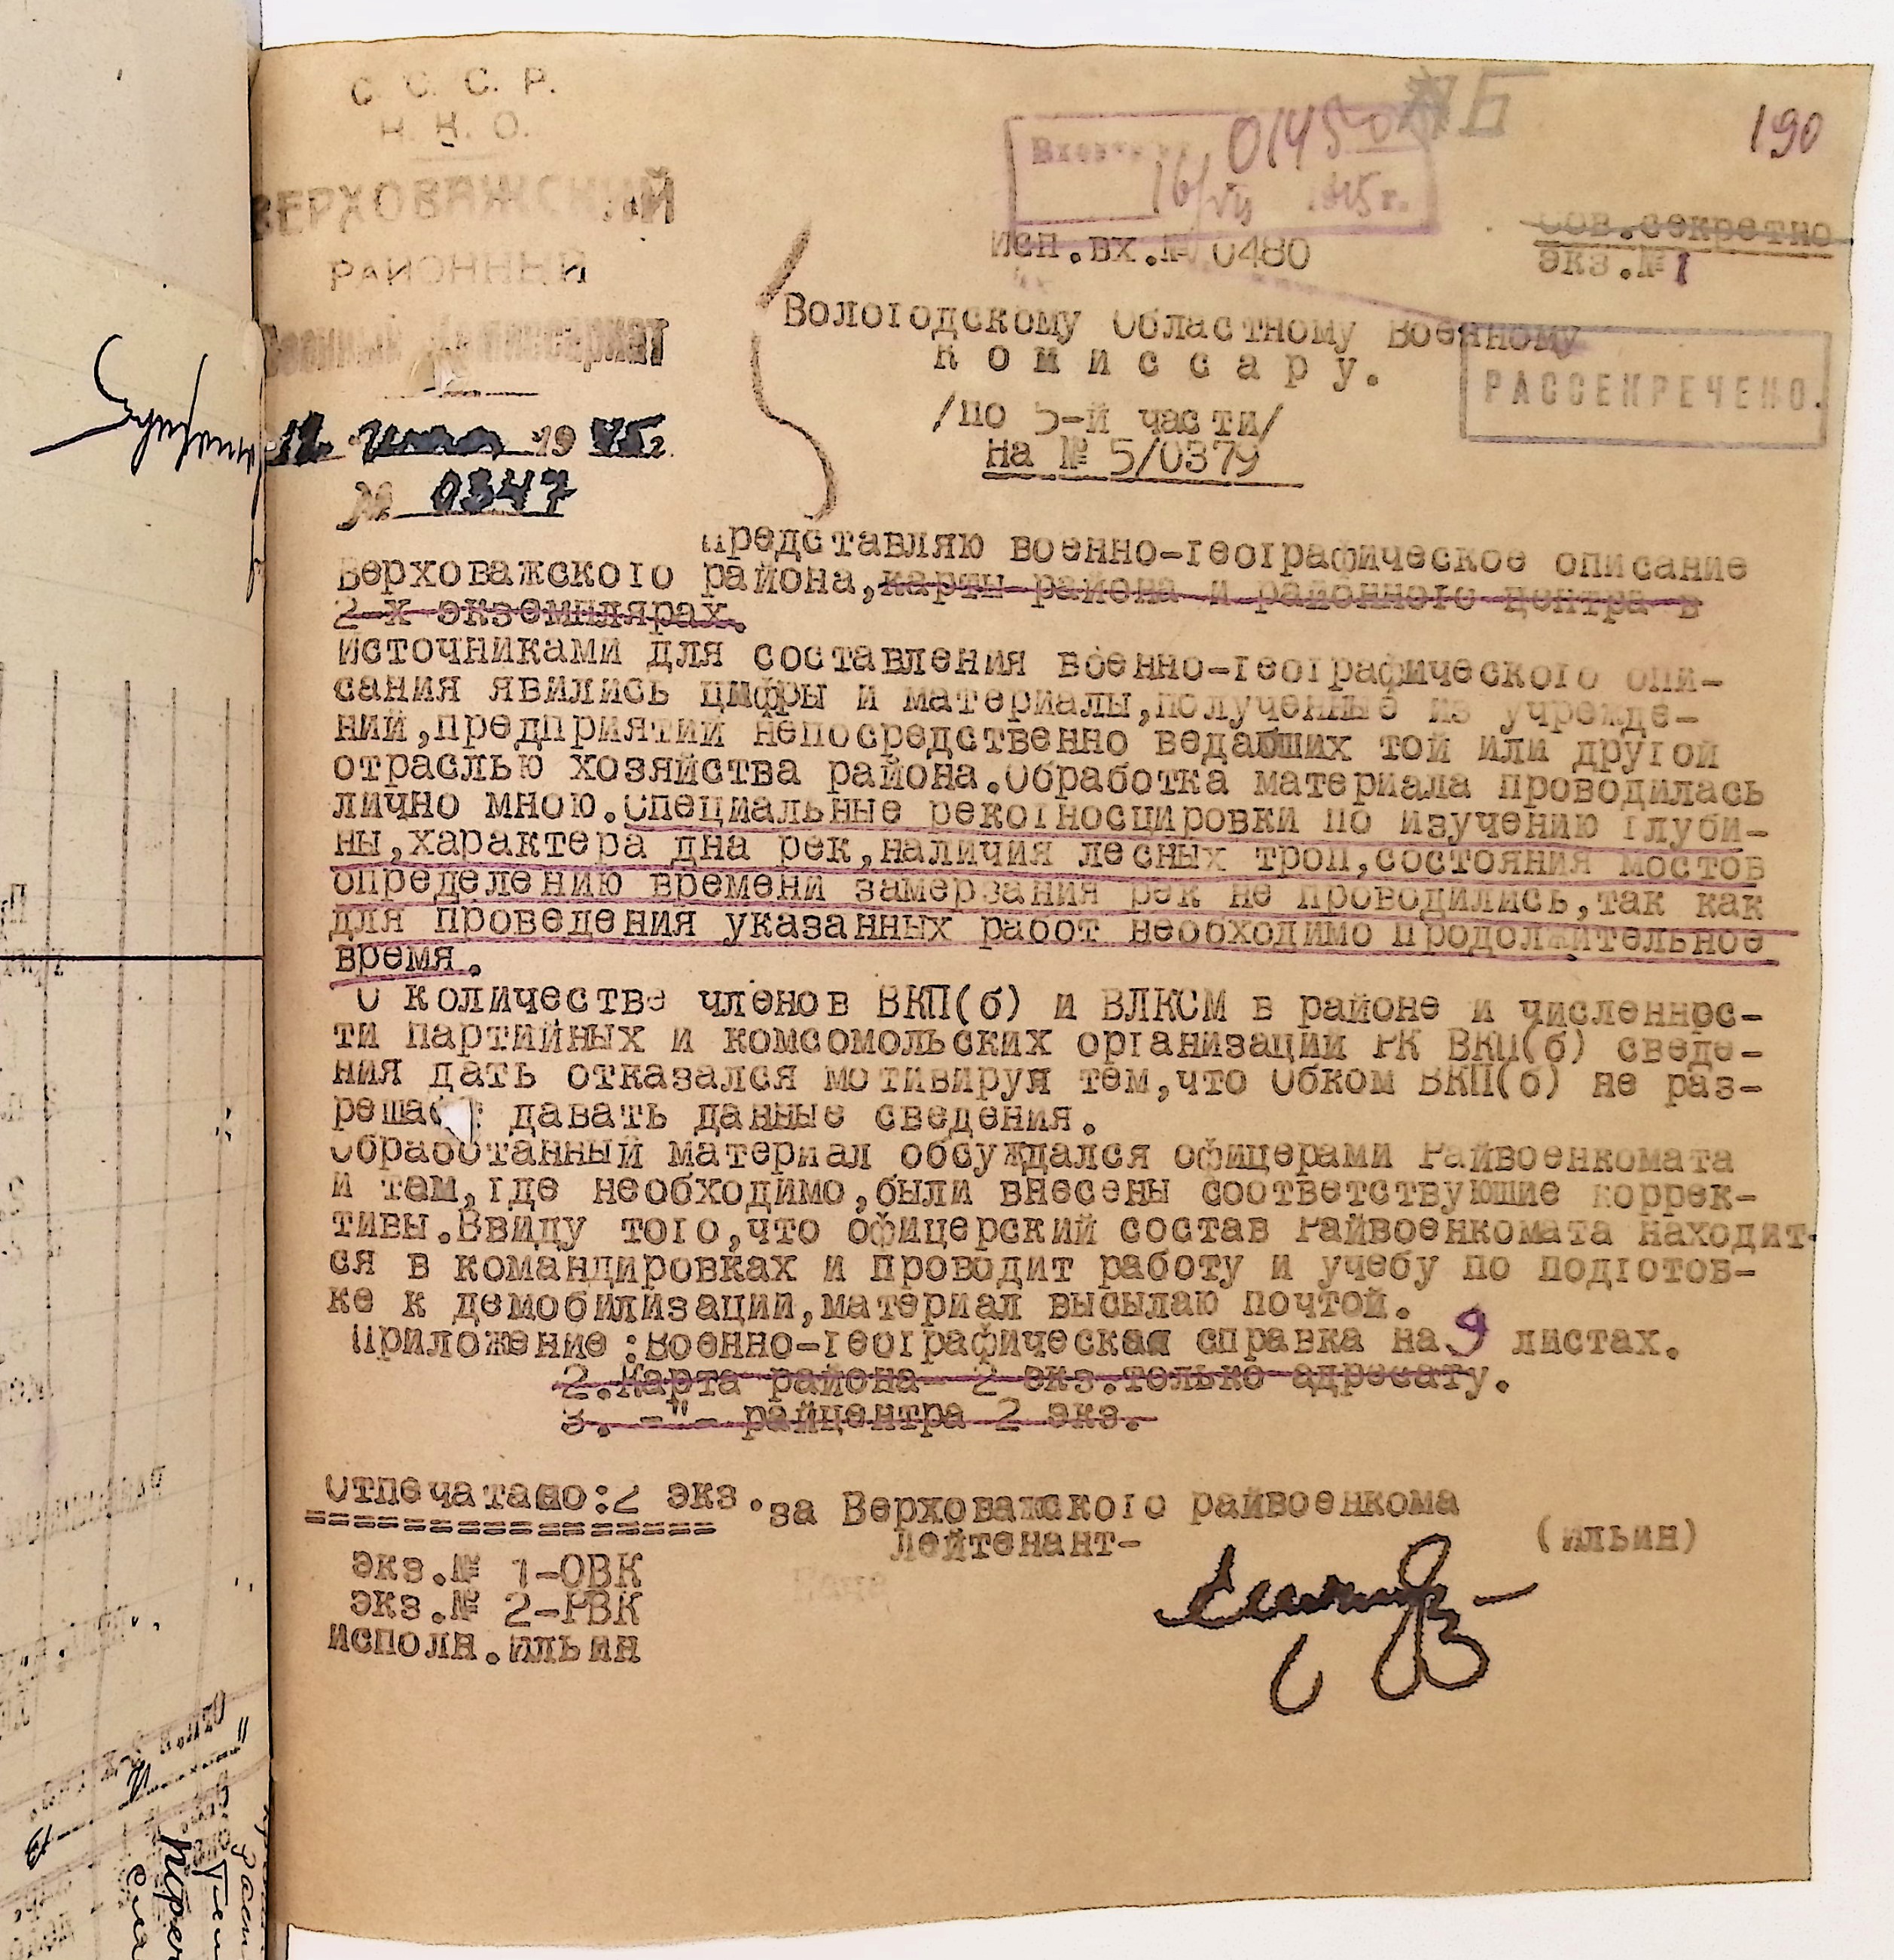 С. С. С. Р.
Н. К. О.
ВЕРХОВАЖСКИЙ
РАЙОННЫЙ
Военный Комиссариат
12 июля 1945г.
№ 0347
01450
16/VII 1945 г.
190
исп.вх.№ 0480
Сов.секретно
экз.№ 1
Вологодскому Областному Военному
К о м и с с а р у.
РАССЕКРЕЧЕНО.
/по 5-й части/
На № 5/0379
Представляю военно-географическое описание
Верховажского района,карты района и районного центра в
2-х экземплярах.
Источниками для составления военно-географического опи-
сания явились цифры и материалы,полученные из учрежде-
ний,предприятий непосредственно ведавших той или другой
отраслью хозяйства района.Обработка материала проводилась
лично мною.Специальные рекогносцировки по изучению глуби-
ны,характера дна рек,наличия лесных троп,состояния мостов
определению времени замерзания рек не проводились,так как
для проведения указанных работ необходимо продолжительное
время.
О количестве членов ВКП(б) и ВЛКСМ в районе и численнос-
ти партийных и комсомольских организаций РК ВКП(б) сведе-
ния дать отказался мотивируя тем,что Обком ВКП(б) не раз-
решает давать данные сведения.
Обработанный материал обсуждался офицерами Райвоенкомата
и там,где необходимо,были внесены соответствующие коррек-
тивы.Ввиду того,что офицерский состав Райвоенкомата находит-
ся в командировках и проводит работу и учебу по подготов-
ке к демобилизации,материал высылаю почтой.
Приложение:Военно-географическая справка на 9 листах.
2.Карта района- 2 экз.только адресату.
3. -"- райцентра 2 экз.
Отпечатано:2 экз.
за Верховажского райвоенкома
лейтенант-
(ильин)
экз.№ 1-ОВК
экз.№ 2-РВК
исполн.ильин